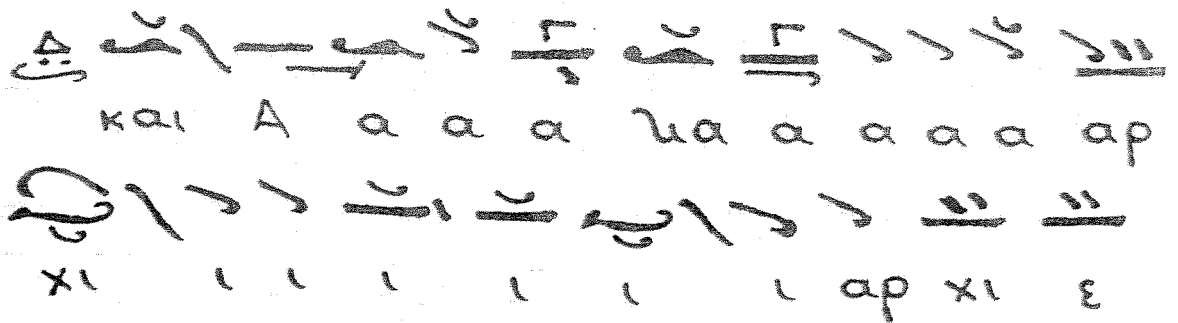 και Α α α α μα α α α α αρ
χι ι ι ι ι ι ι αρ χι ε